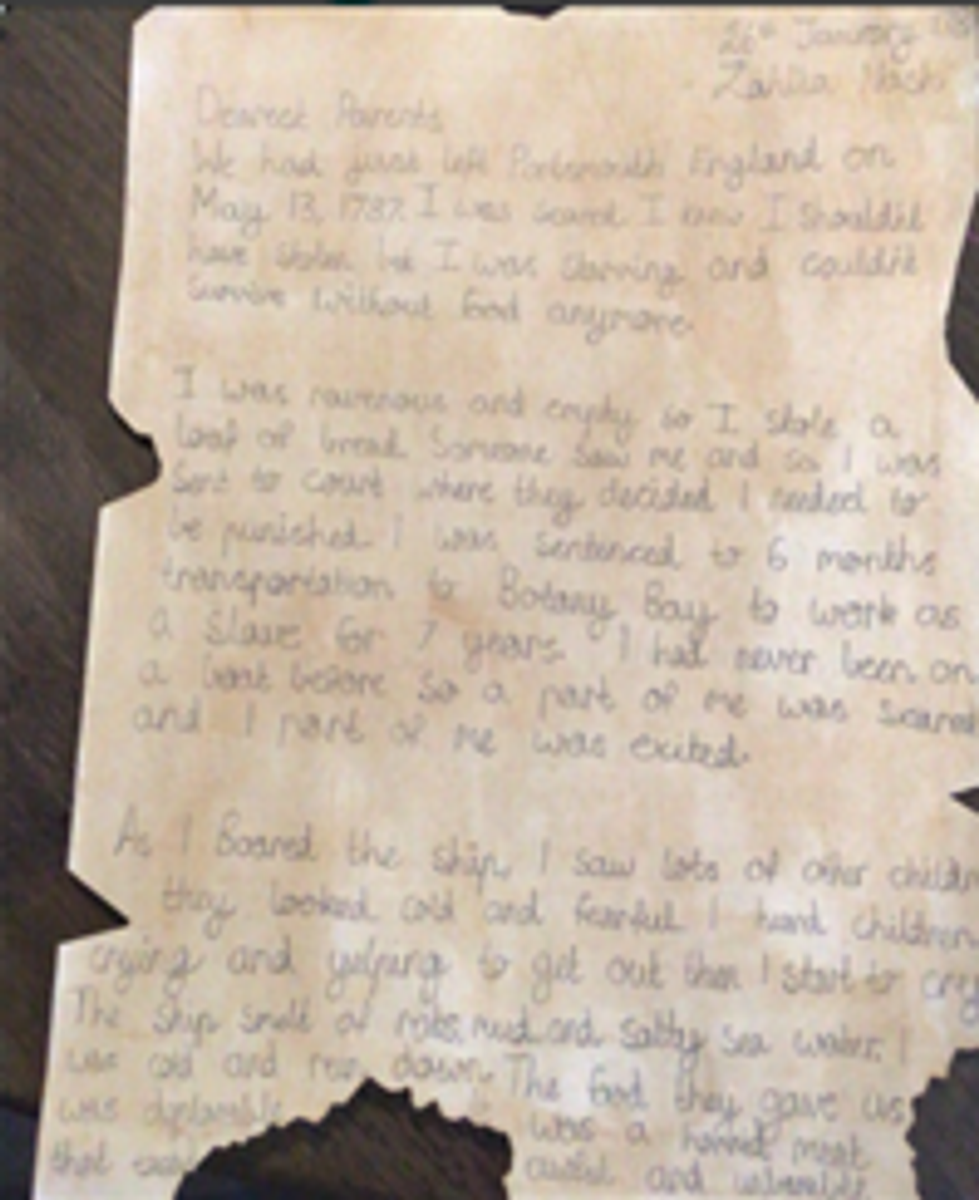 26th January
Zahlia
Dearest Parents
We had just left Portsmouth England on
May 13, 1787. I was scared I knew I shouldn't
have stolen but I was starving and couldn't
survive without food anymore.
I was ravenous and empty so I stole a
loaf of bread. Someone saw me and so I was
sent to court where they decided I needed to
be punished. I was sentenced to 6 months
transportation to Botany Bay to work as
a slave for 7 years. I had never been on
a boat before so a part of me was scared
and 1 part of me was exited.
As I Boared the ship, I saw lots of other
they looked cold and fearful I heard children
crying and yelping to get out then I start to cry
The ship smelt of rats, mud and salty sea water. I
was cold and run down. The food they gave us
was deplorable was a meat
that and